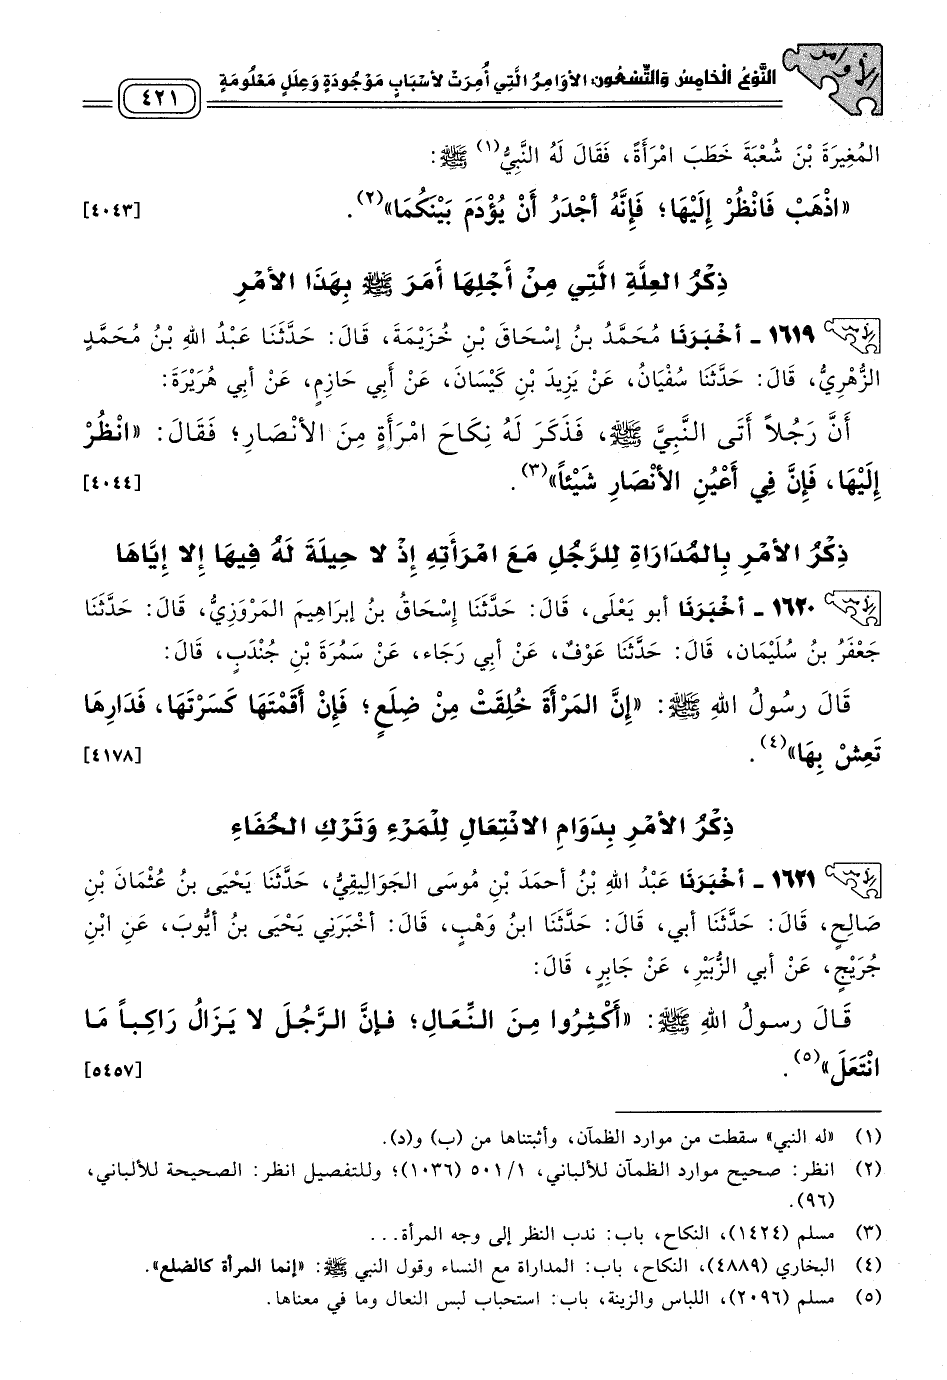 الأوامر
النَّوْعُ الْخَامِسُ وَالتِّسْعُونَ: الأَوَامِرُ الَّتِي أُمِرَتْ لأَسْبَابٍ مَوْجُودَةٍ وَعِلَلٍ مَعْلُومَةٍ
٤٢١
المُغِيرَةَ بْنَ شُعْبَةَ خَطَبَ امْرَأَةً، فَقَالَ لَهُ النَّبِيُّ(١) ﷺ:
«اذْهَبْ فَانْظُرْ إِلَيْهَا؛ فَإِنَّهُ أجْدَرُ أَنْ يُؤْدَمَ بَيْنَكُمَا»(٢). [٤٠٤٣]
ذِكْرُ العِلَّةِ الَّتِي مِنْ أَجْلِهَا أَمَرَ ﷺ بِهَذَا الأَمْرِ
١٦١٩ - أخْبَرَنَا مُحَمَّدُ بنُ إسْحَاقَ بْنِ خُزَيْمَةَ، قَالَ: حَدَّثَنَا عَبْدُ اللهِ بْنُ مُحَمَّدٍ
الزُّهْرِيُّ، قَالَ: حَدَّثَنَا سُفْيَانُ، عَنْ يَزِيدَ بْنِ كَيْسَانَ، عَنْ أَبِي حَازِمٍ، عَنْ أبي هُرَيْرَةَ:
أَنَّ رَجُلاً أَتَى النَّبِيَّ ﷺ، فَذَكَرَ لَهُ نِكَاحَ امْرَأَةٍ مِنَ الأنْصَارِ؛ فَقَالَ: «انْظُرْ
إِلَيْهَا، فَإِنَّ فِي أَعْيُنِ الأنْصَارِ شَيْئاً»(٣). [٤٠٤٤]
ذِكْرُ الأَمْرِ بِالمُدَارَاةِ لِلرَّجُلِ مَعَ امْرَأَتِهِ إِذْ لا حِيلَةَ لَهُ فِيهَا إِلا إِيَّاهَا
١٦٢٠ - أخْبَرَنَا أبو يَعْلَى، قَالَ: حَدَّثَنَا إِسْحَاقُ بنُ إبرَاهِيمَ المَرْوَزِيُّ، قَالَ: حَدَّثَنَا
جَعْفَرُ بنُ سُلَيْمَان، قَالَ: حَدَّثَنَا عَوْفٌ، عَنْ أبي رَجَاء، عَنْ سَمُرَةَ بْنِ جُنْدَبٍ، قَالَ:
قَالَ رَسُولُ اللهِ ﷺ: «إِنَّ المَرْأَةَ خُلِقَتْ مِنْ ضِلَعٍ؛ فَإِنْ أَقَمْتَهَا كَسَرْتَهَا، فَدَارِهَا
تَعِشْ بِهَا»(٤). [٤١٧٨]
ذِكْرُ الأَمْرِ بِدَوَامِ الانْتِعَالِ لِلْمَرْءِ وَتَرْكِ الحُفَاءِ
١٦٢١ - أخْبَرَنَا عَبْدُ اللهِ بْنُ أحمَدَ بْنِ مُوسَى الجَوَالِيقِيُّ، حَدَّثَنَا يَحْيَى بنُ عُثْمَانَ بْنِ
صَالِحٍ، قَالَ: حَدَّثَنَا أبي، قَالَ: حَدَّثَنَا ابنُ وَهْبٍ، قَالَ: أخْبَرَنِي يَحْيَى بنُ أيُّوبَ، عَنِ ابْنِ
جُرَيْجٍ، عَنْ أبي الزُّبَيْرِ، عَنْ جَابِرٍ، قَالَ:
قَالَ رسولُ اللهِ ﷺ: «أَكْثِرُوا مِنَ النِّعَالِ؛ فإنَّ الرَّجُلَ لا يَزَالُ رَاكِباً مَا
انْتَعَلَ»(٥). [٥٤٥٧]
(١) «له النبي» سقطت من موارد الظمآن، وأثبتناها من (ب) و(د).
(٢) انظر: صحيح موارد الظمآن للألباني، ١/ ٥٠١ (١٠٣٦)؛ وللتفصيل انظر: الصحيحة للألباني،
(٩٦).
(٣) مسلم (١٤٢٤)، النكاح، باب: ندب النظر إلى وجه المرأة...
(٤) البخاري (٤٨٨٩)، النكاح، باب: المداراة مع النساء وقول النبي ﷺ: «إنما المرأة كالضلع».
(٥) مسلم (٢٠٩٦)، اللباس والزينة، باب: استحباب لبس النعال وما في معناها.